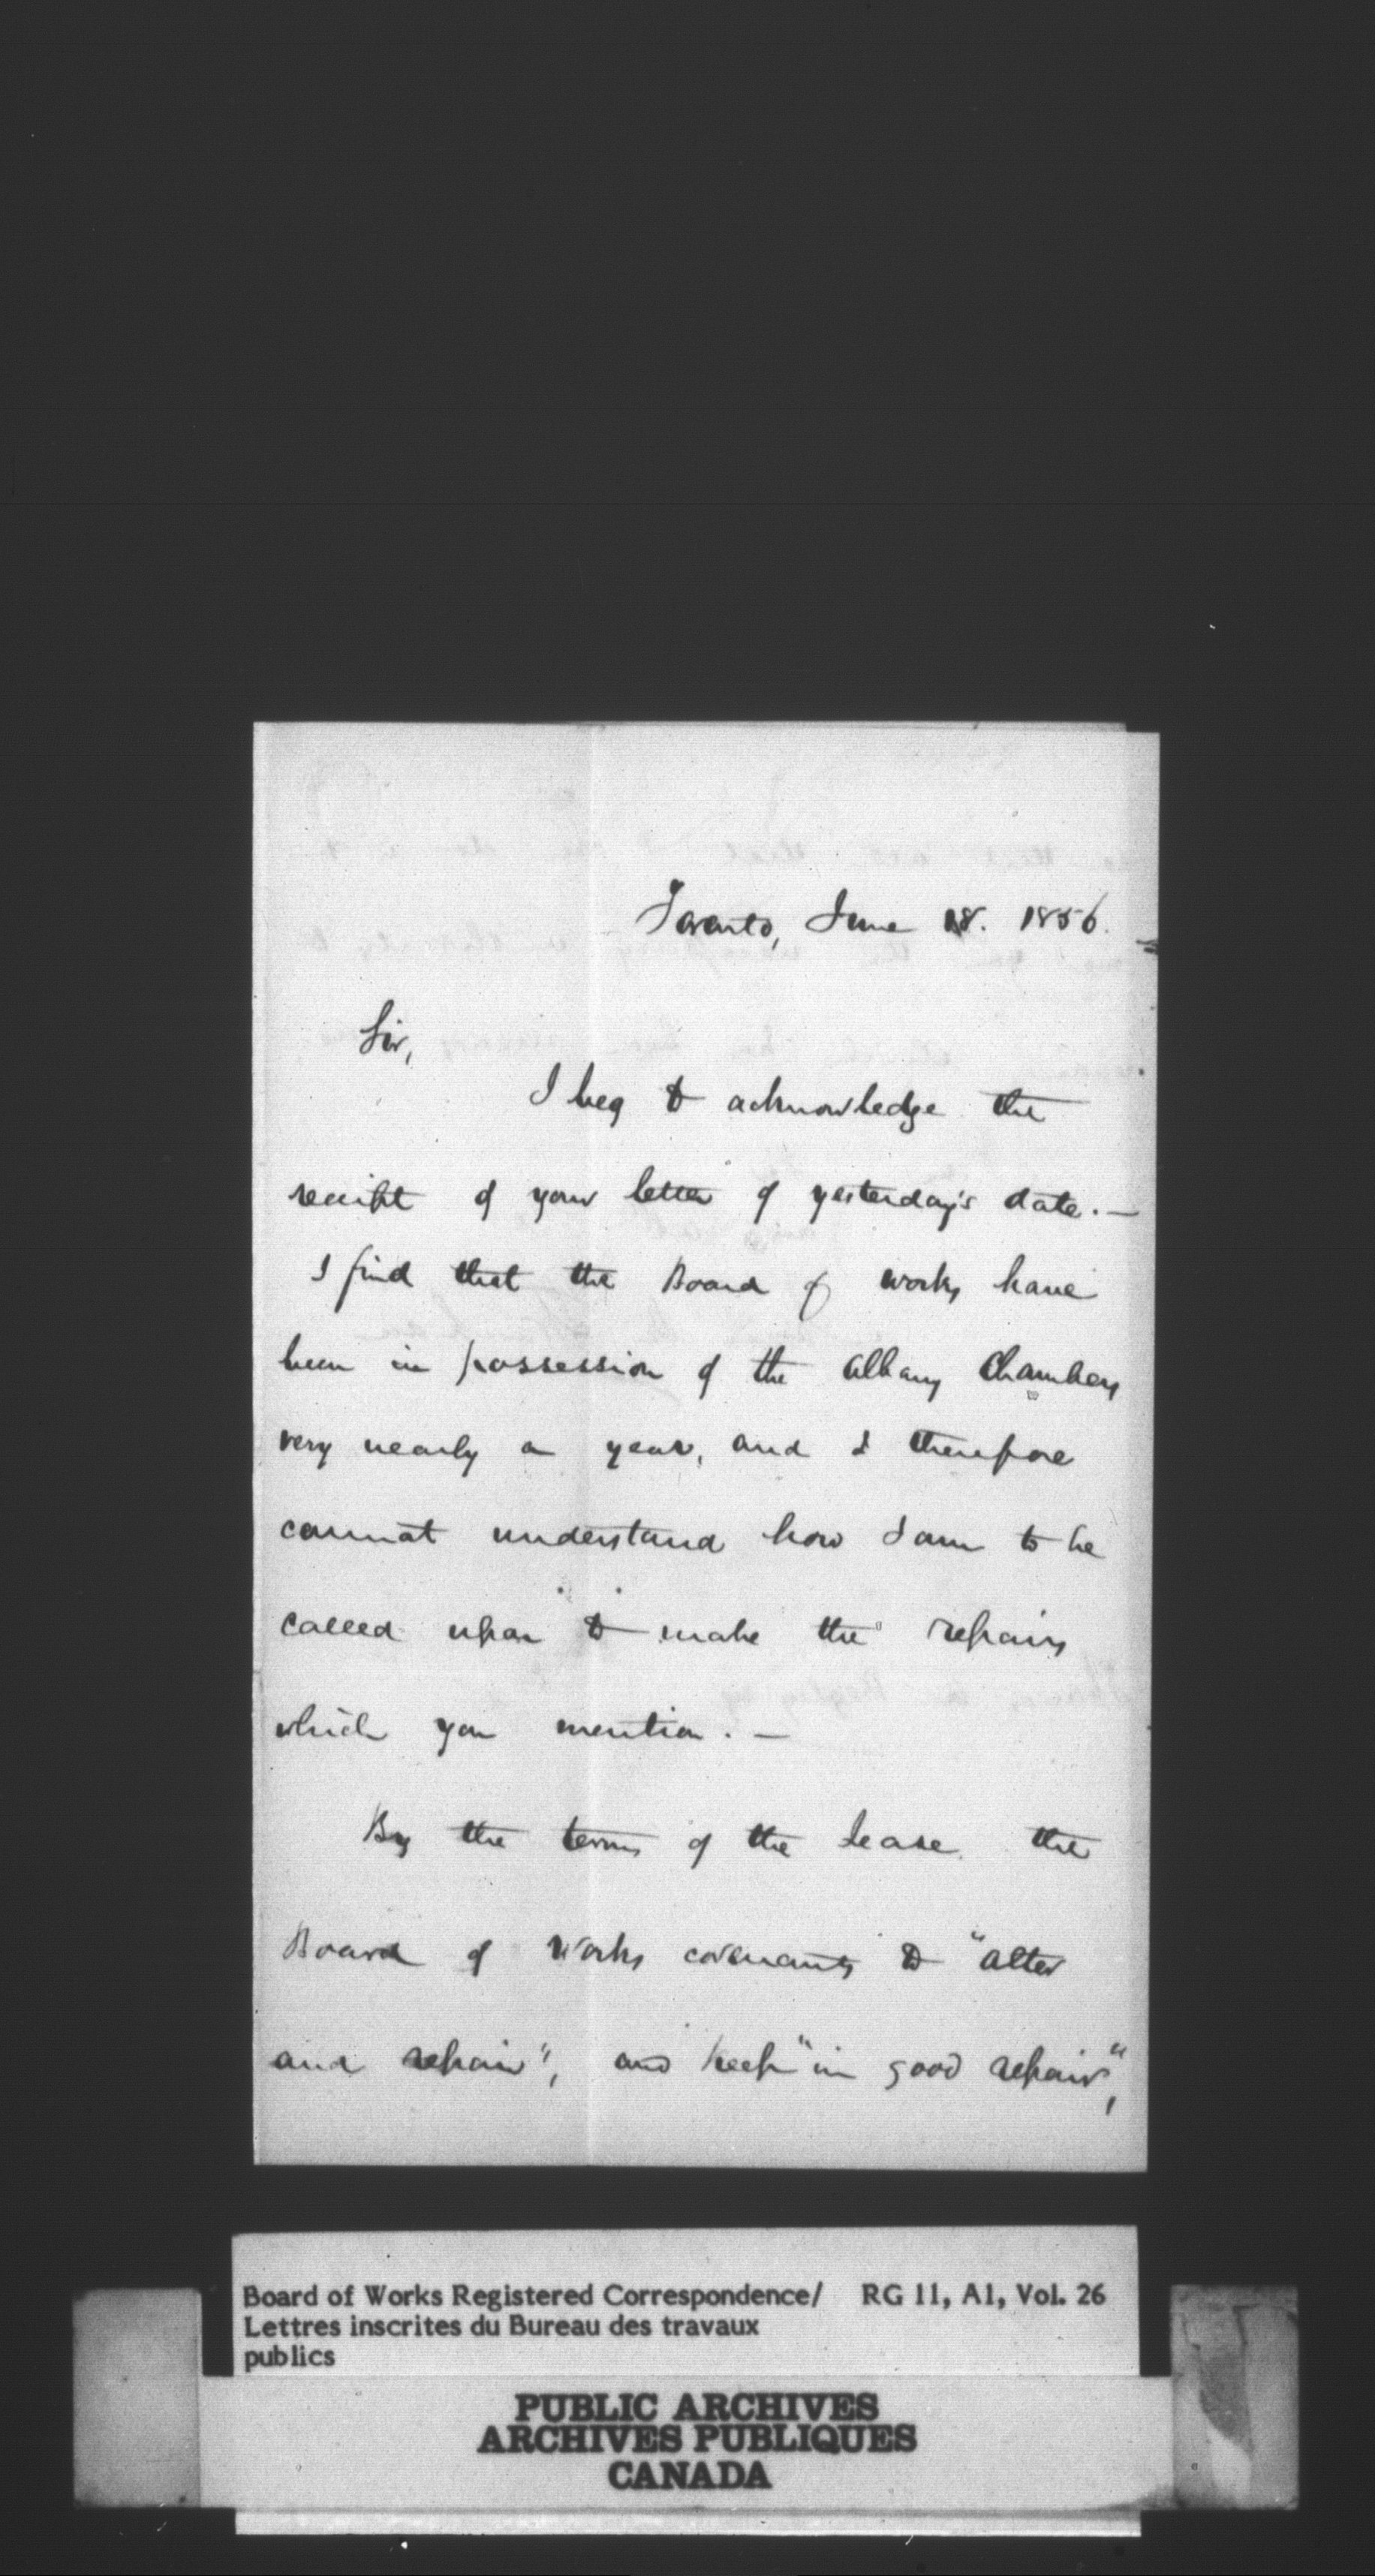 Toronto, June 18. 1856.
Sir,
I beg to acknowledge the
receipt of your letter of yesterday's date. —
I find that the Board of works have
been in possession of the Albany Chambers
very nearly a year, and I therefore
cannot understand how I am to be
called upon to make the repairs
which you mention. —
By the terms of the Lease the
Board of Works covenants to "alter
and repair", and keep "in good repair",
Board of Works Registered Correspondence/ RG 11, A1, Vol. 26
Lettres inscrites du Bureau des travaux
publics
PUBLIC ARCHIVES
ARCHIVES PUBLIQUES
CANADA